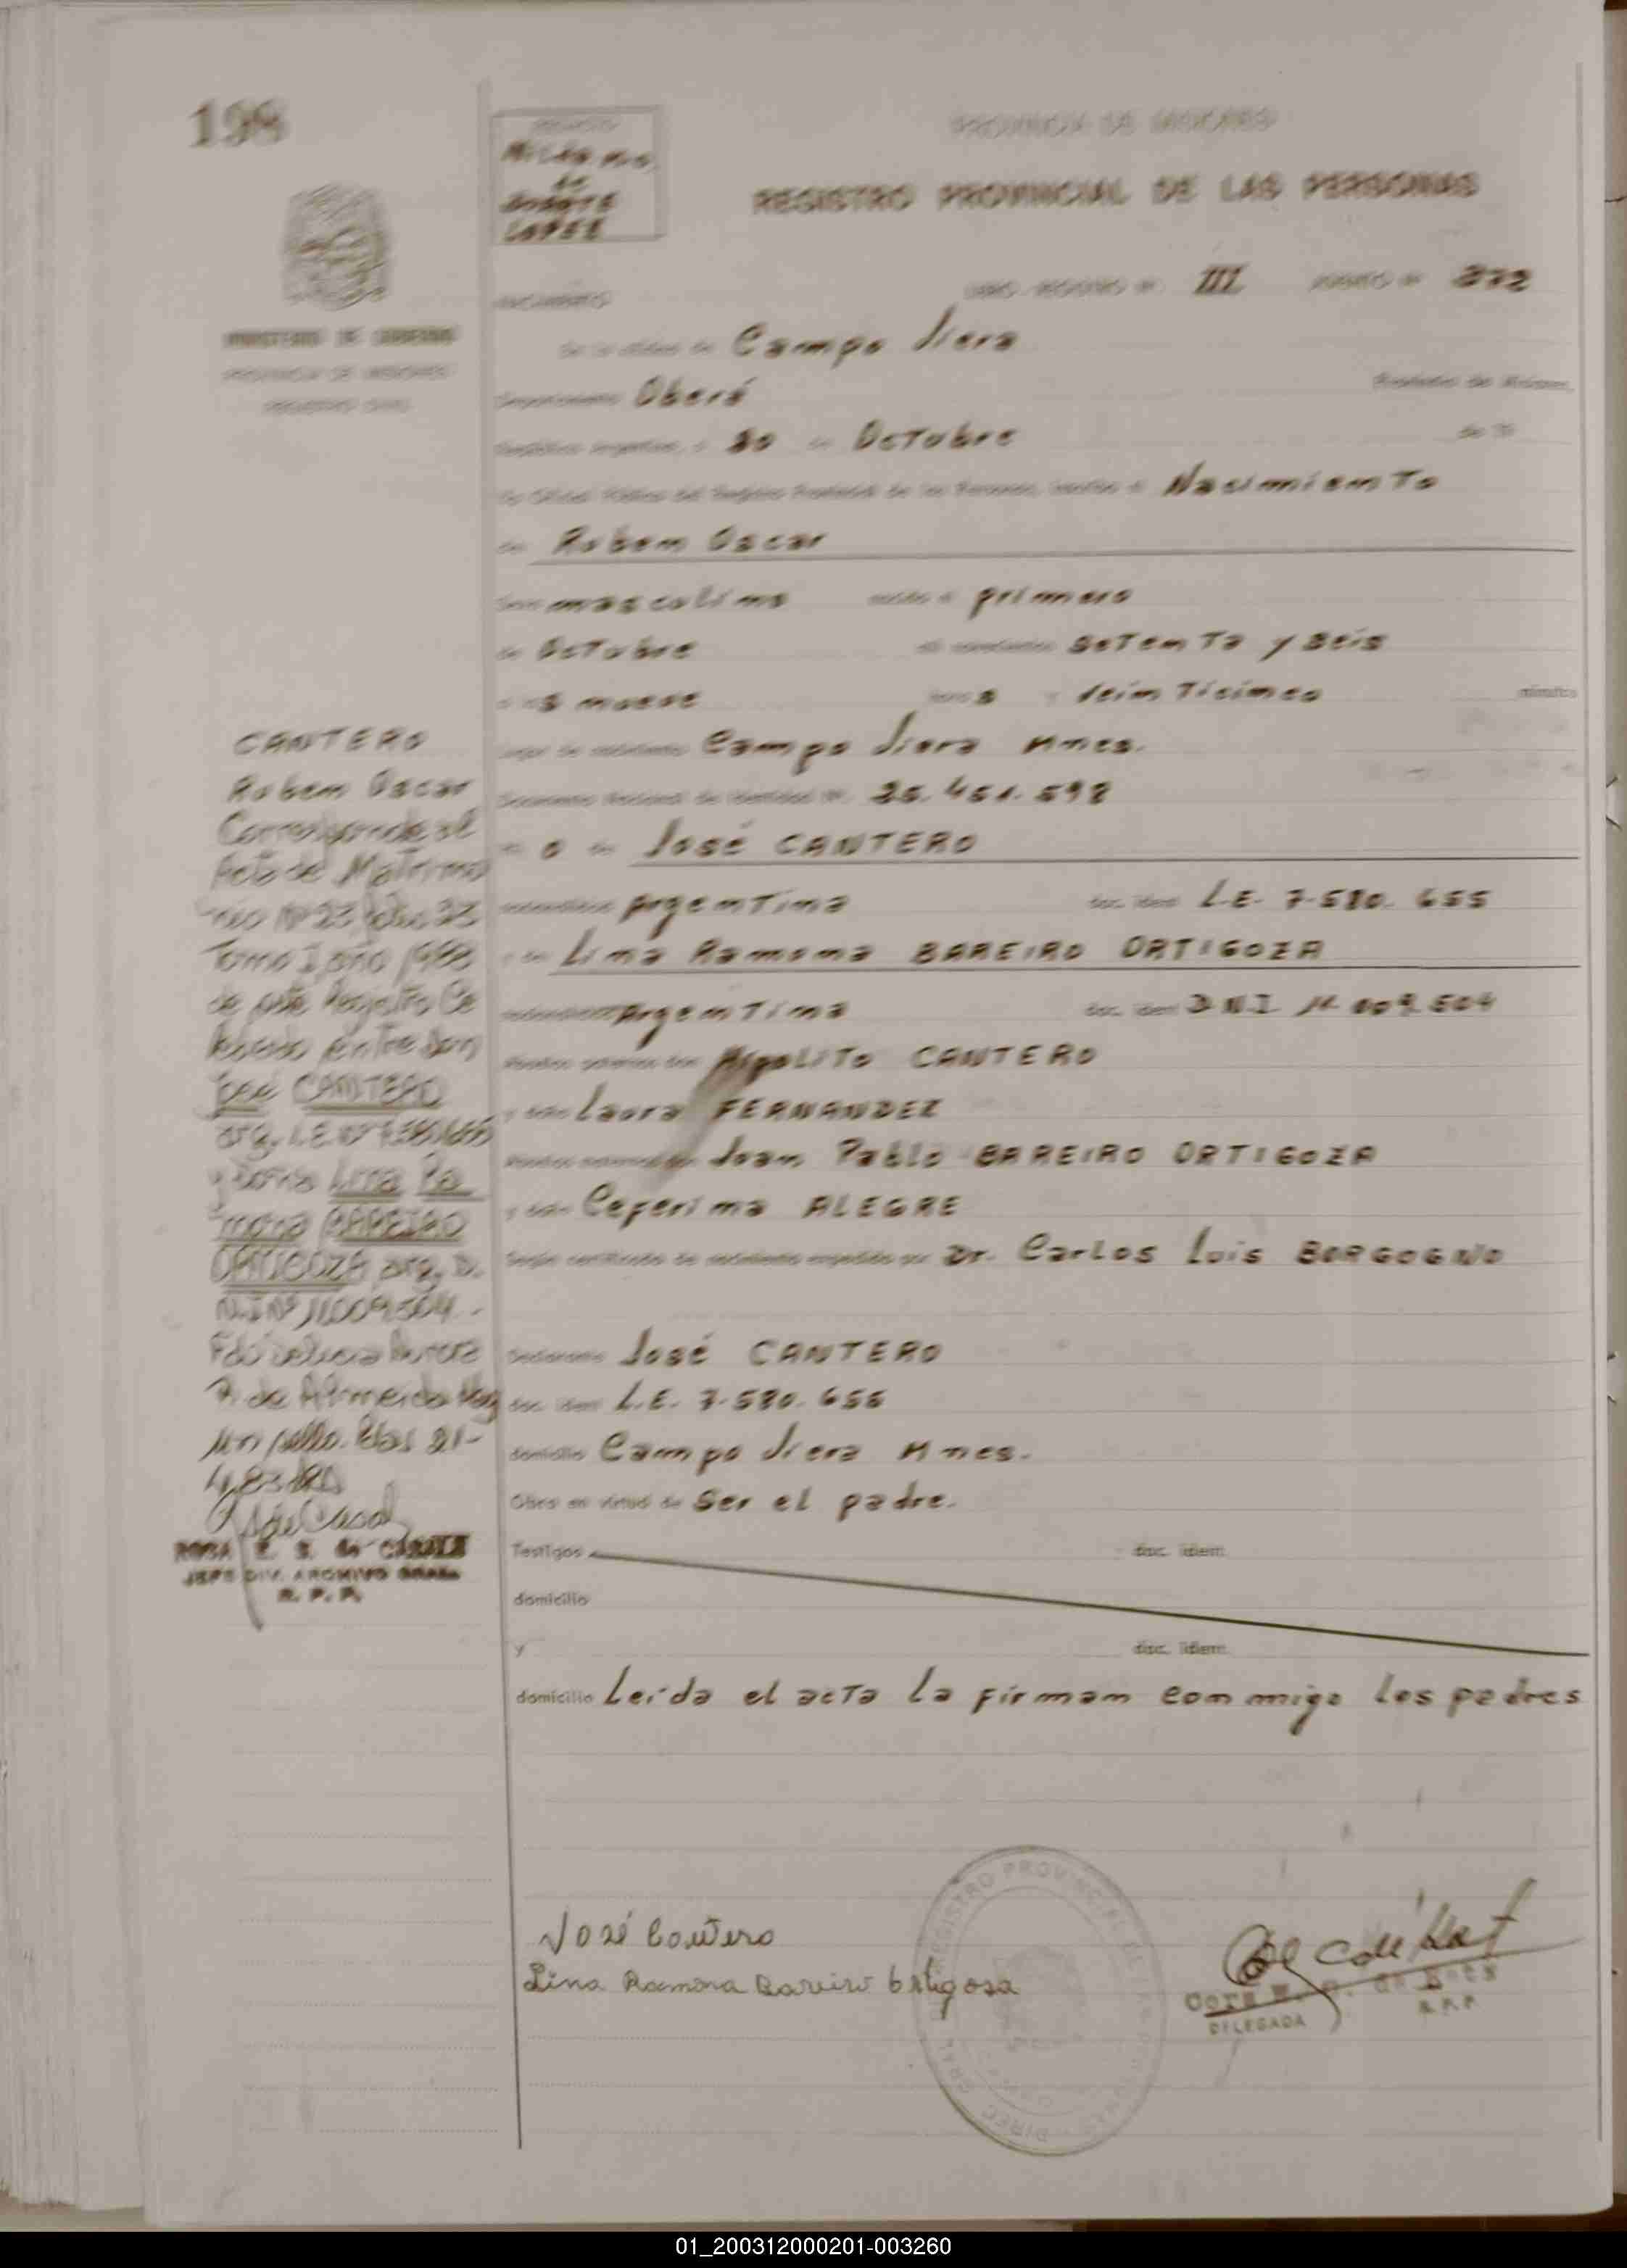 198
PROVINCIA DE MISIONES
REGISTRO PROVINCIAL DE LAS PERSONAS
MINISTERIO DE GOBIERNO
PROVINCIA DE MISIONES
REGISTRO CIVIL
NACIMIENTO III 372
Campo Viera
Departamento Oberá
República Argentina, a 20 de Octubre de 19
Nacimiento
de Ruben Oscar
Sexo masculino nacido el primero
de Octubre setenta y seis
nueve horas veinticinco minutos
Lugar de nacimiento Campo Viera Mnes.
Documento Nacional de Identidad Nº 25.451.598
José CANTERO
nacionalidad Argentina doc. iden L.E. 7.580.655
Lina Ramona BAREIRO ORTIGOZA
nacionalidad Argentina doc. iden D N I 11.009.504
Abuelos paternos don Hipolito CANTERO
y doña Laura FERNANDEZ
Abuelos maternos don Juan Pablo BAREIRO ORTIGOZA
y doña Ceferina ALEGRE
Según certificado de nacimiento expedido por Dr. Carlos Luis BORGOGNO
Declarante José CANTERO
doc. iden L.E. 7.580.655
domicilio Campo Viera Mnes.
Obra en virtud de Ser el padre.
Testigos doc. idem
domicilio
y doc. idem
domicilio Leída el acta la firman conmigo los padres
CANTERO
Ruben Oscar
Corresponde al
Acta de Matrimo
nio Nº 23 folio 23
Tomo I año 1983
de este Registro Ce
lebrado entre don
José CANTERO
arg. L.E Nº 7.580.655
y doña Lina Ra
mona BAREIRO
ORTIGOZA arg. D.
N.I Nº 11009504.-
ROSA E. S. de
JEFE DIV. ARCHIVO GRAL.
R. P. P.
José Cantero
Lina Ramona Bareiro Ortigosa
REGISTRO PROVINCIAL DE LAS PERSONAS
DIREC. GRAL.
DELEGADA R.P.P
01_200312000201-003260